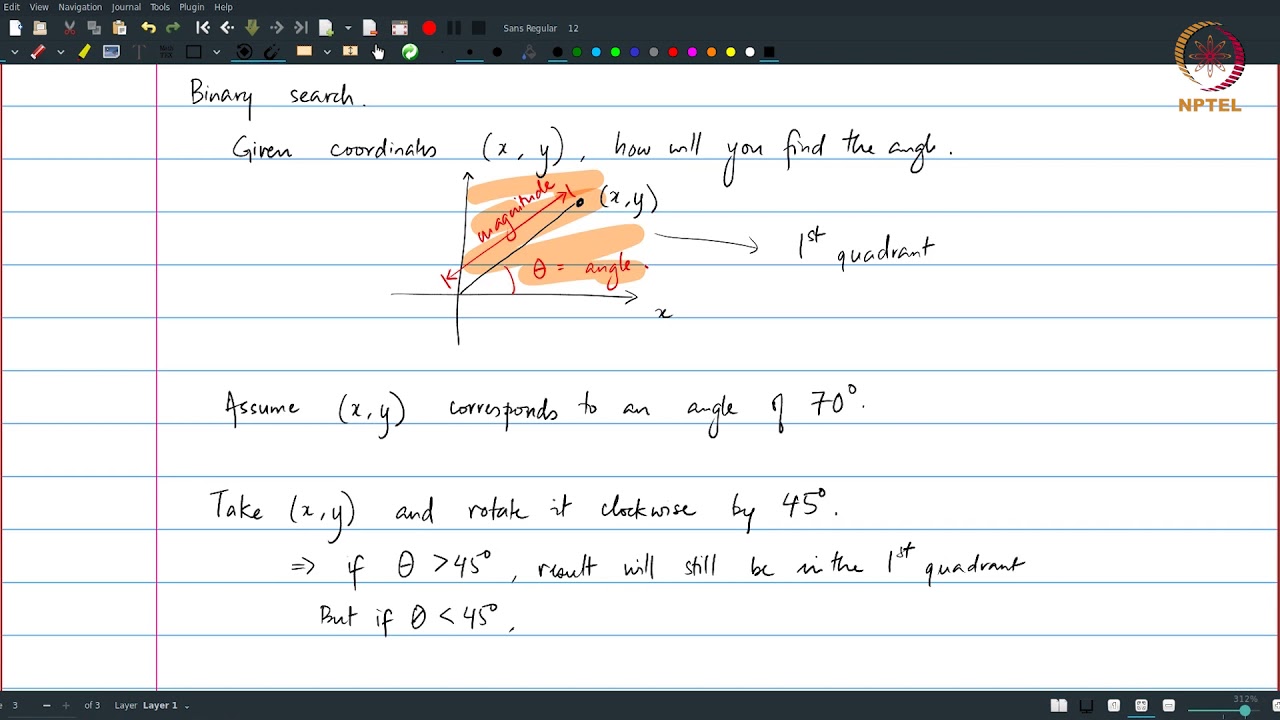 Edit View Navigation Journal Tools Plugin Help
Sans Regular 12
NPTEL
Binary search.
Given coordinates (x, y), how will you find the angle.
magnitude
(x,y)
θ = angle.
1st quadrant
x
Assume (x,y) corresponds to an angle of 70°.
Take (x,y) and rotate it clockwise by 45°.
⇒ if θ > 45°, result will still be in the 1st quadrant
But if θ < 45°,
3 of 3 Layer Layer 1
312%